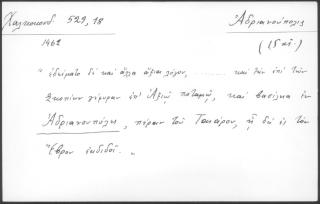 Χαλκοκονδ. 529, 18
Ἀδριανούπολις
1462
(15 αἰ.)
" ἐδείματο δὲ καὶ ἄλλα ἄξια λόγου, ......... καὶ τὴν ἐπὶ τῶν
Σκοπίων γέφυραν ἐπ' Ἀξιῷ ποταμῷ, καὶ βασίλεια ἐν
Ἀδριανουπόλει, πέραν τοῦ Ταινάρου, ᾗ δὴ ἐς τὸν
Ἕβρον ἐκδιδοῖ. "